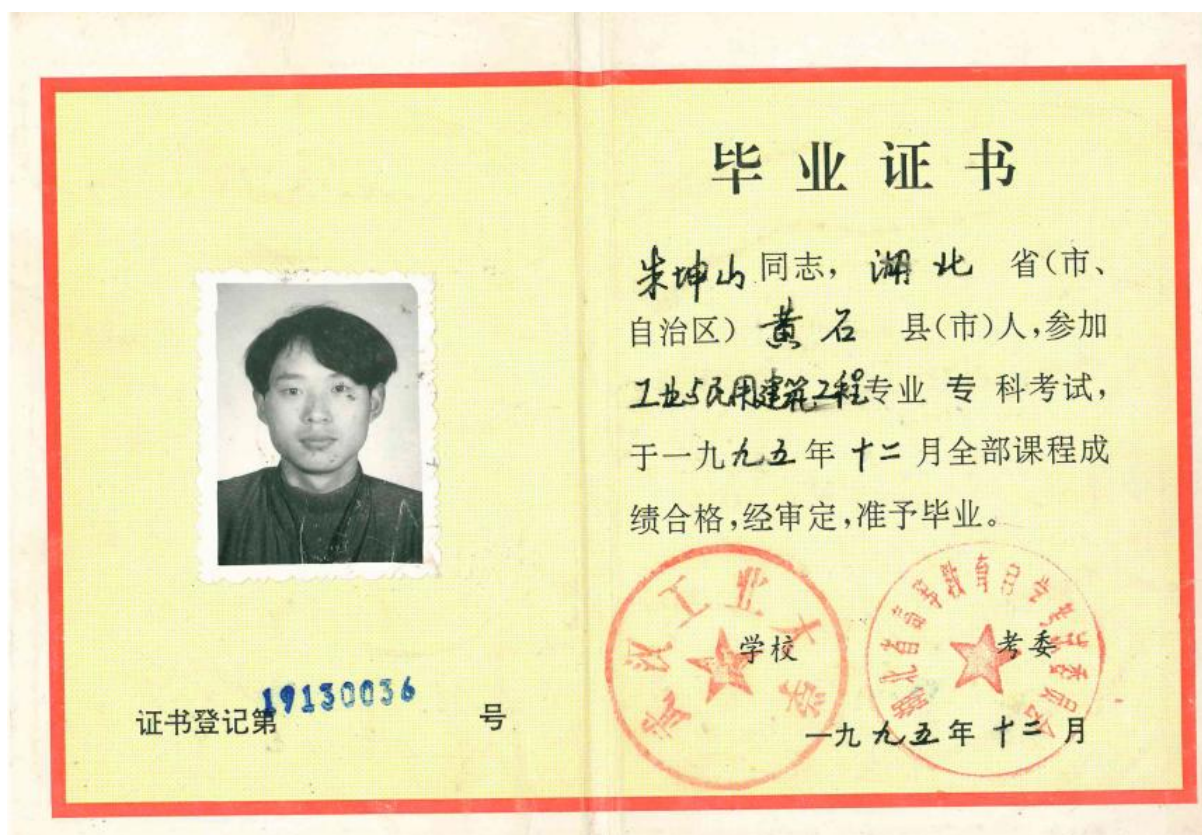 毕业证书
朱坤山同志，湖北 省（市、
自治区）黄石 县（市）人，参加
工业与民用建筑工程专业 专 科考试，
于一九九五年十二月全部课程成
绩合格，经审定，准予毕业。
武汉工业大学
学校
湖北省高等教育自学考试委员会
考委
一九九五年十二月
证书登记第19130036 号